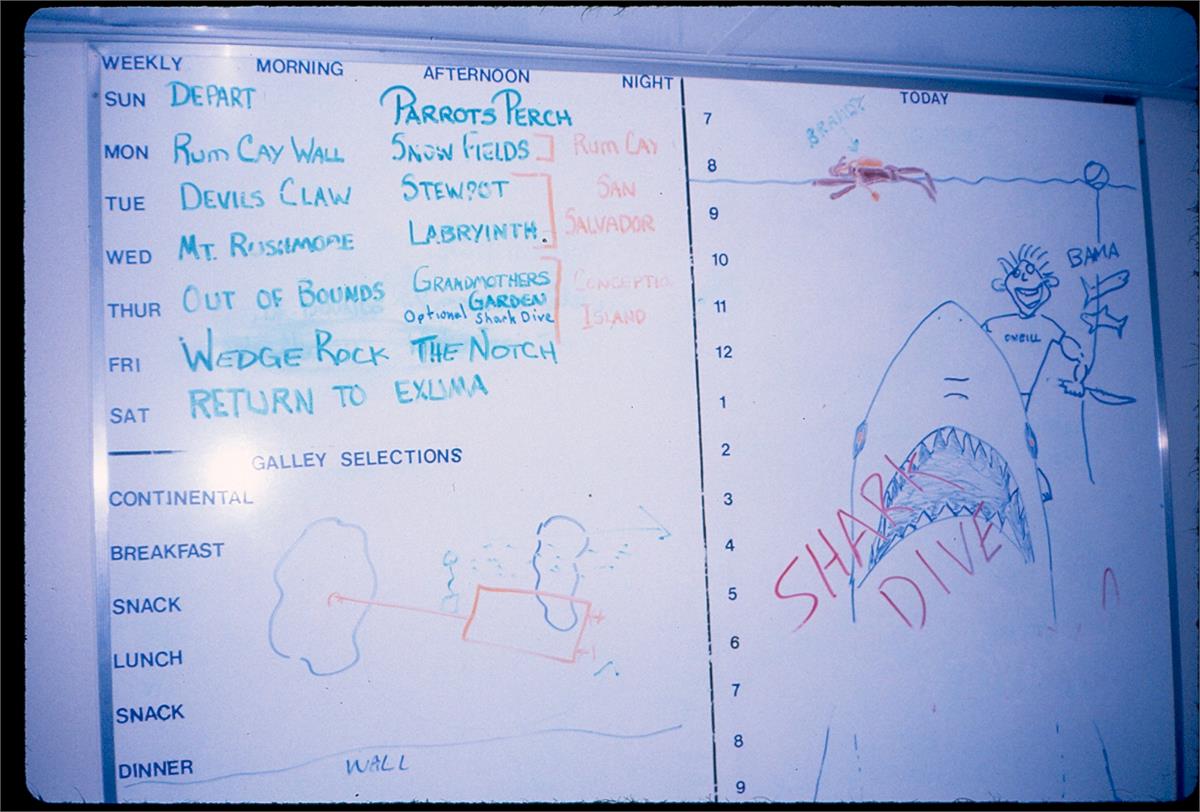 WEEKLY MORNING AFTERNOON NIGHT
SUN DEPART PARROTS PERCH
MON RUM CAY WALL SNOW FIELDS RUM CAY
TUE DEVILS CLAW STEWPOT SAN
SALVADOR
WED MT. RUSHMORE LABRYINTH.
THUR OUT OF BOUNDS GRANDMOTHERS CONCEPTIO
GARDEN
Optional Shark Dive ISLAND
FRI WEDGE ROCK THE NOTCH
SAT RETURN TO EXUMA
GALLEY SELECTIONS
CONTINENTAL
BREAKFAST
SNACK
LUNCH
SNACK
DINNER WALL
TODAY
7
8
9
10
11
12
1
2
3
4
5
6
7
8
9
BRANDY
BAMA
ONEILL
SHARK
DIVE